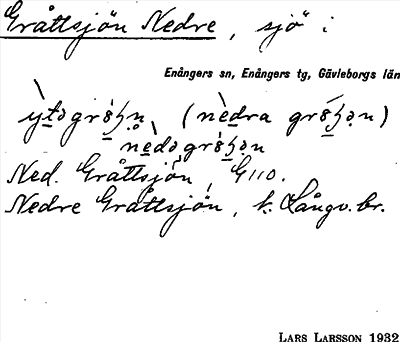 Gråttsjön Nedre, sjö i
Enångers sn, Enångers tg, Gävleborgs län
(nedra
Ned. Gråttsjön, G110.
Nedre Gråttsjön, k. Långv. br.
LARS LARSSON 1932